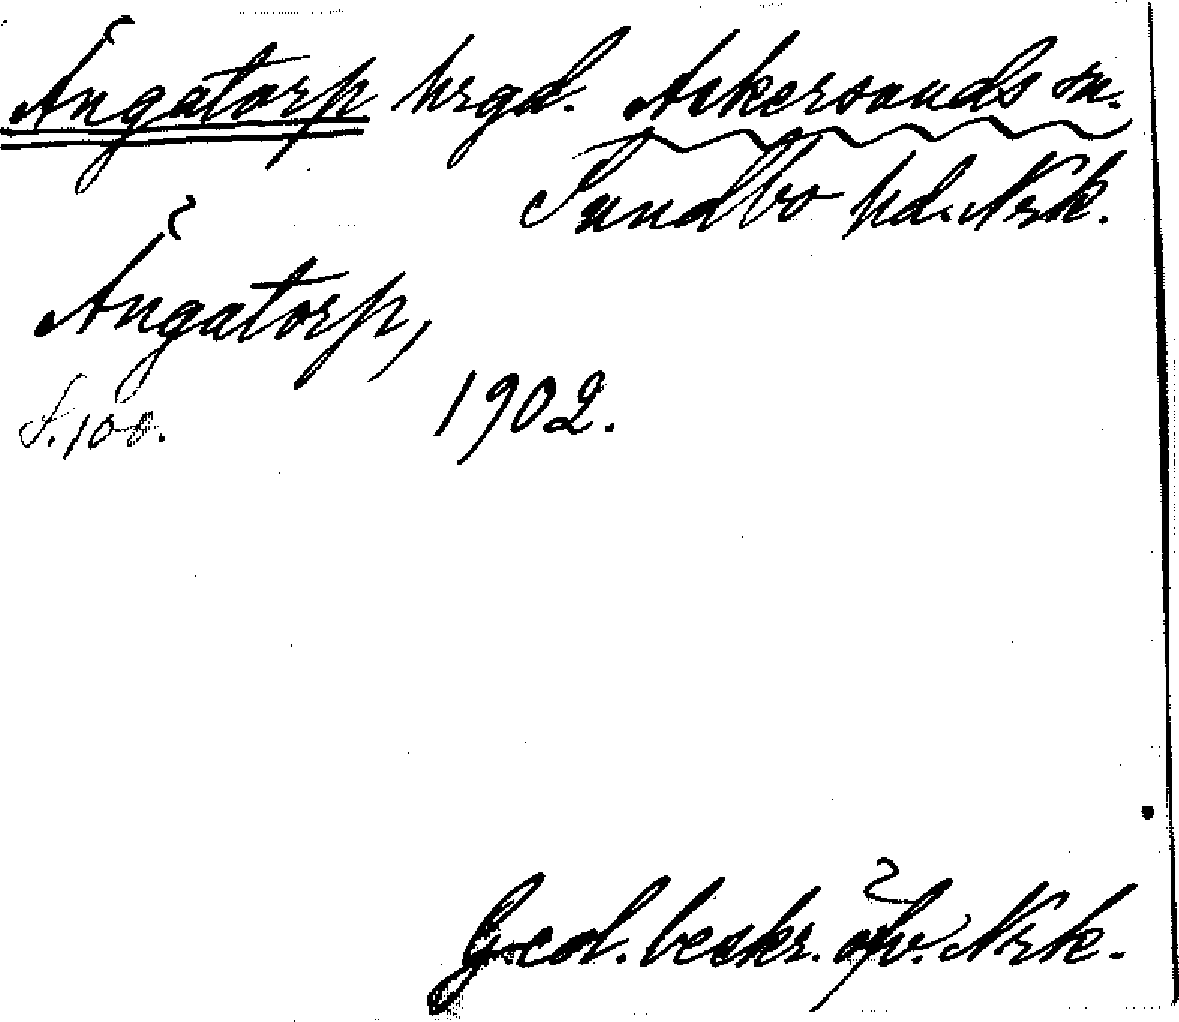 Ängatorp hrgd. Askersunds sn.
Sundbo hd. Nrk.
Ängatorp,
S. 100.
1902.
Geol. beskr. öfv. Nrk.